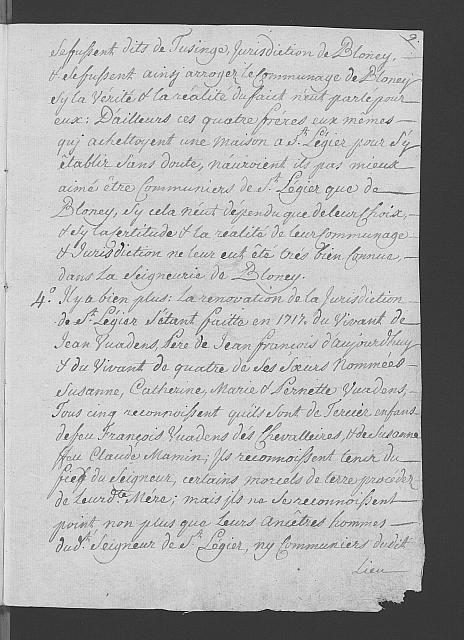 9.
se fussent dits de Tusinge, Jurisdiction de Bloney,
& se fussent ainsj arrogér le Communage de Bloney
sy la Vérité & la réalité du fait n'eut parlé pour
eux: D'ailleurs ces quatre frères eux mêmes
quj achettoyent une maison a St. Légier pour s'y
établir sans doute, n'auroient ils pas mieux
aimé être Communiers de St. Légier que de
Bloney, sy cela n'eut dépendu que de leur Choix,
& sy la certitude & la réalité de leur Communage
& Jurisdiction ne leur eut été très bien connue,
dans la Seigneurie de Bloney.
4°. Il y a bien plus: la rénovation de la Jurisdiction
de St. Légier s'étant faitte en 1717. du Vivant de
Jean Vuadens, Père de Jean François d'aujourd'huy
& du Vivant de quatre de ses Sœurs Nommées
Susanne, Catherine, Marie & Pernette Vuadens,
Tous cinq reconnoissent qu'ils sont de
enfans
de feu François Vuadens des Chevalleires, & de Susanne
ffeu Claude Mamin; Ils reconnoissent tenir du
fief du Seigneur, certains morcels de terre procédez
de leur dte. Mère; mais Ils ne se reconnoissent
point non plus que leurs Ancêtres hommes
du dt. Seigneur de St. Légier, ny Communiers dudit
Lieu